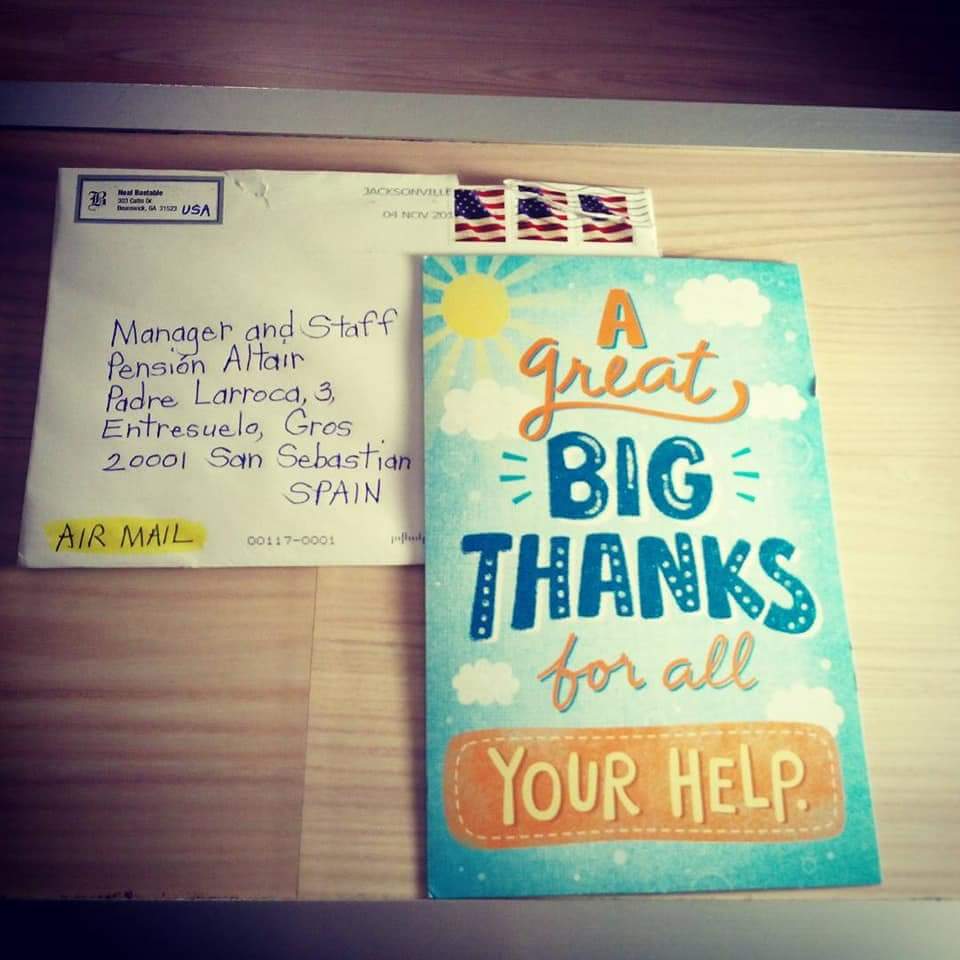 B
Neal Bastable
Brunswick, GA 31523 USA
JACKSONVILLE
04 NOV 201
Manager and Staff
Pensión Altair
Padre Larroca, 3,
Entresuelo, Gros
20001 San Sebastian
SPAIN
AIR MAIL
00117-0001
A
great
BIG
THANKS
for all
YOUR HELP.